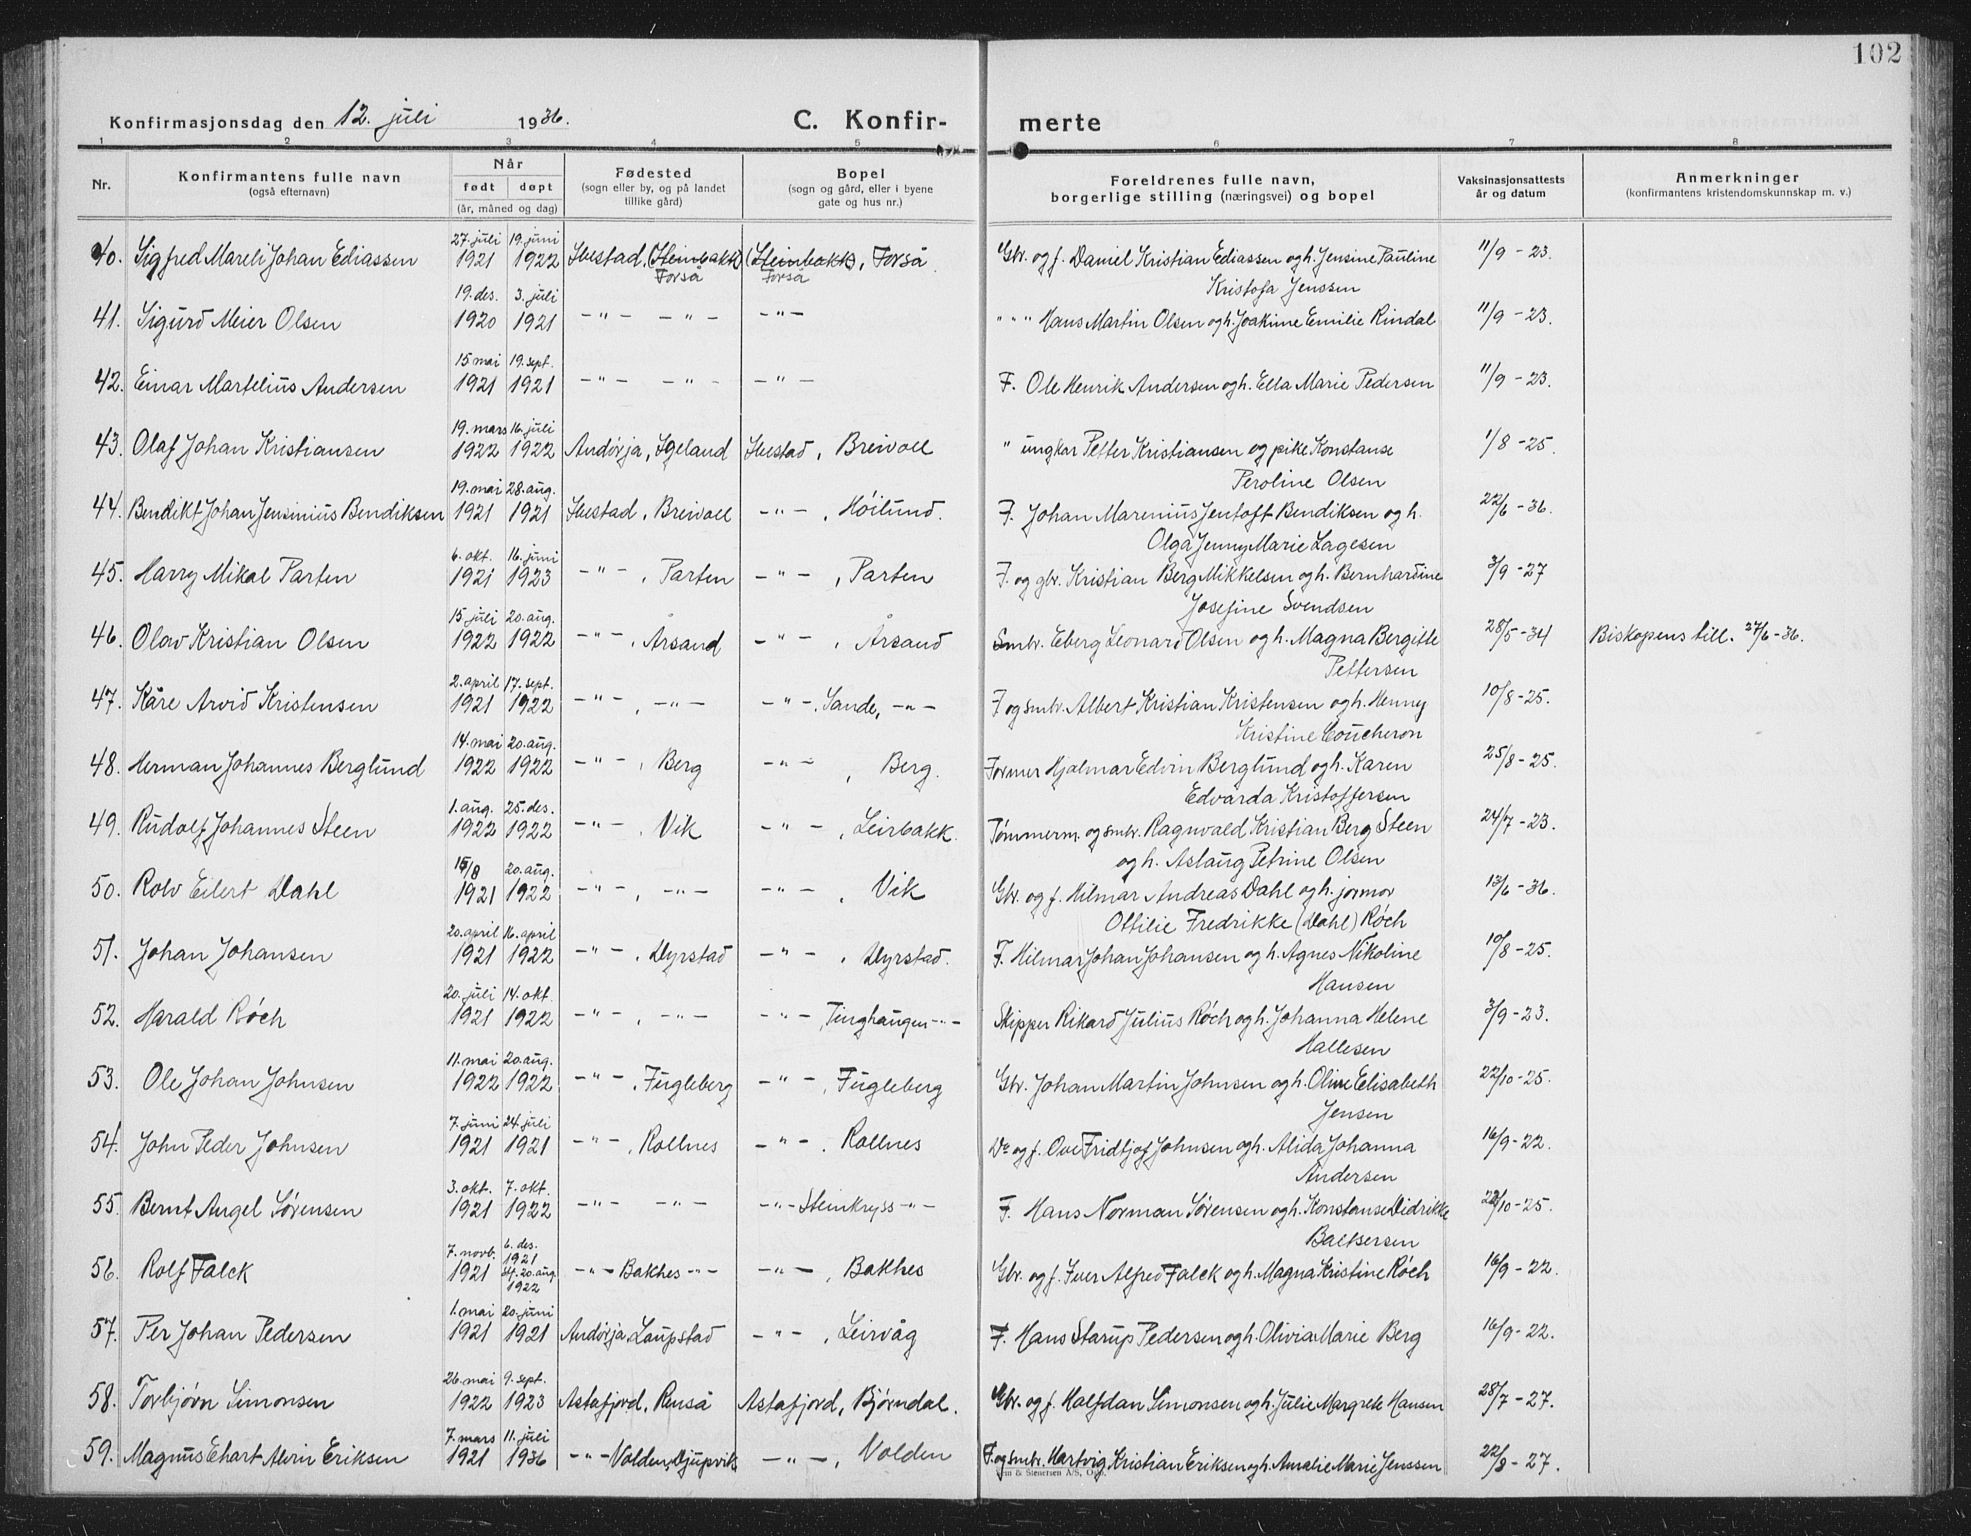 102
Konfirmasjonsdag den 12. juli 1936. C. Konfir- merte
1 2 3 4 5 6 7 8
Nr. Konfirmantens fulle navn (også efternavn) Når født døpt (år, måned og dag) Fødested (sogn eller by, og på landet tillike gård) Bopel (sogn og gård, eller i byene gate og hus nr.) Foreldrenes fulle navn, borgerlige stilling (næringsvei) og bopel Vaksinasjonsattests år og datum Anmerkninger (konfirmantens kristendomskunnskap m. v.)
40. Sigfred Mareli Johan Ediassen 27. juli 1921 19. juni 1922 Ibestad, (Steinbakk) Forså (Steinbakk), Forså Forså Gbr. og f. Daniel Kristian Ediassen og h. Jensine Pauline Kristofa Jenssen 11/9 - 23.
41. Sigurd Meier Olsen 19. des. 1920 3. juli 1921 - " - - " - - " - " " " Hans Martin Olsen og h. Joakime Emilie Rindal 11/9 - 23.
42. Einar Martelius Andersen 15 mai 1921 19. sept. 1921 - " - - " - - " - F. Ole Henrik Andersen og h. Ella Marie Pedersen 11/9 - 23.
43. Olaf Johan Kristiansen 19. mars 1922 16. juli 1922 Andørja, Igeland Ibestad, Breivoll " ungkar Petter Kristiansen og pike Konstanse Peroline Olsen 1/8 - 25.
44. Bendikt Johan Jensinius Bendiksen 19. mai 1921 28. aug. 1921 Ibestad, Breivoll - " - , Høilund. F. Johan Marenius Jentoft Bendiksen og h. Olga Jenny Marie Lagesen 22/6 - 36.
45. Harry Mikal Parten 6. okt. 1921 16. juni 1923 - " - , Parten - " - , Parten F. og gbr. Kristian Berg Mikkelsen og h. Bernhardine Josefine Svendsen 3/9 - 27
46. Olav Kristian Olsen 15. juli 1922 20. aug. 1922 - " - , Årsand - " - , Årsand Smbr. Eberg Leonard Olsen og h. Magna Bergitte Pettersen 28/5 - 34 Biskopens till. 27/6 - 36.
47. Kåre Arvid Kristensen 2. april 1921 17. sept. 1922 - " - , - " - - " - , Sande, - " - F og smbr. Albert Kristian Kristensen og h. Henny Kristine Coucheron 10/8 - 25.
48. Herman Johannes Berglund 14. mai 1922 20. aug. 1922 - " - , Berg - " - , Berg. Former Hjalmar Edvin Berglund og h. Karen Edvarda Kristoffersen 25/8 - 25.
49. Rudolf Johannes Steen 1. aug. 1922 25. des. 1922 - " - , Vik - " - , Leirbakk. Tømmerm. og smbr. Ragnvald Kristian Berg Steen og h. Aslaug Petrine Olsen 24/7 - 23.
50. Rolv Eilert Dahl 15/8 1921 20. aug. 1922 - " - , - " - - " - , Vik Gbr. og f. Hilmar Andreas Dahl og h. jormor Ottilie Fredrikke (Dahl) Røch 13/6 - 36.
51. Johan Johansen 20. april 1921 16. april 1922 - " - , Dyrstad - " - , Dyrstad. F. Hilmar Johan Johansen og h. Agnes Nikoline Hansen 10/8 - 25.
52. Harald Røch 20. juli 1921 14. okt. 1922 - " - , - " - - " - , Tinghaugen - " - Skipper Rikard Julius Røch og h. Johanna Helene Hallesen 3/9 - 23.
53. Ole Johan Johnsen 11. mai 1922 20. aug. 1922 - " - , Fugleberg - " - , Fugleberg Gbr. Johan Martin Johnsen og h. Oline Elisabeth Jensen 22/10 - 25.
54. John Peder Johnsen 7. juni 1921 24. juli 1921 - " - , Rollnes - " - , Rollnes Do og f. Ove Fridtjof Johnsen og h. Alida Johanna Andersen 16/9 - 22.
55. Bernt Angel Sørensen 3. okt. 1921 7. okt. 1922 - " - - " - - " - Steinkryss - " - F. Hans Norman Sørensen og h. Konstanse Didrikke Baltsersen 22/10 - 25.
56. Rolf Falck 7. novb. 1921 6. des. 1921 stf. 20. aug. 1922 - " - Bakhes - " - - " - , Bakhes Gbr. og f. Iver Alfred Falck og h. Magna Kristine Røch 16/9 - 22.
57. Per Johan Pedersen 1. mai 1921 20. juni 1921 Andørja, Laupstad - " - , Leirvåg F. Hans Starup Pedersen og h. Olivia Marie Berg 16/9 - 22.
58. Torbjørn Simonsen 26. mai 1922 9. sept. 1923 Astafjord, Renså Astafjord, Bjørndal. Gbr. og f. Halfdan Simonsen og h. Julie Margrete Hansen 28/7 - 27.
59. Magnus Ehart Alvin Eriksen 7. mars 1921 11. juli 1936 - " - Volden, Djupvik - " - , Volden F. og smbr. Hartvig Kristian Eriksen og h. Amalie Marie Jenssen 22/8 - 27.
& Stenersen A/S, Oslo.